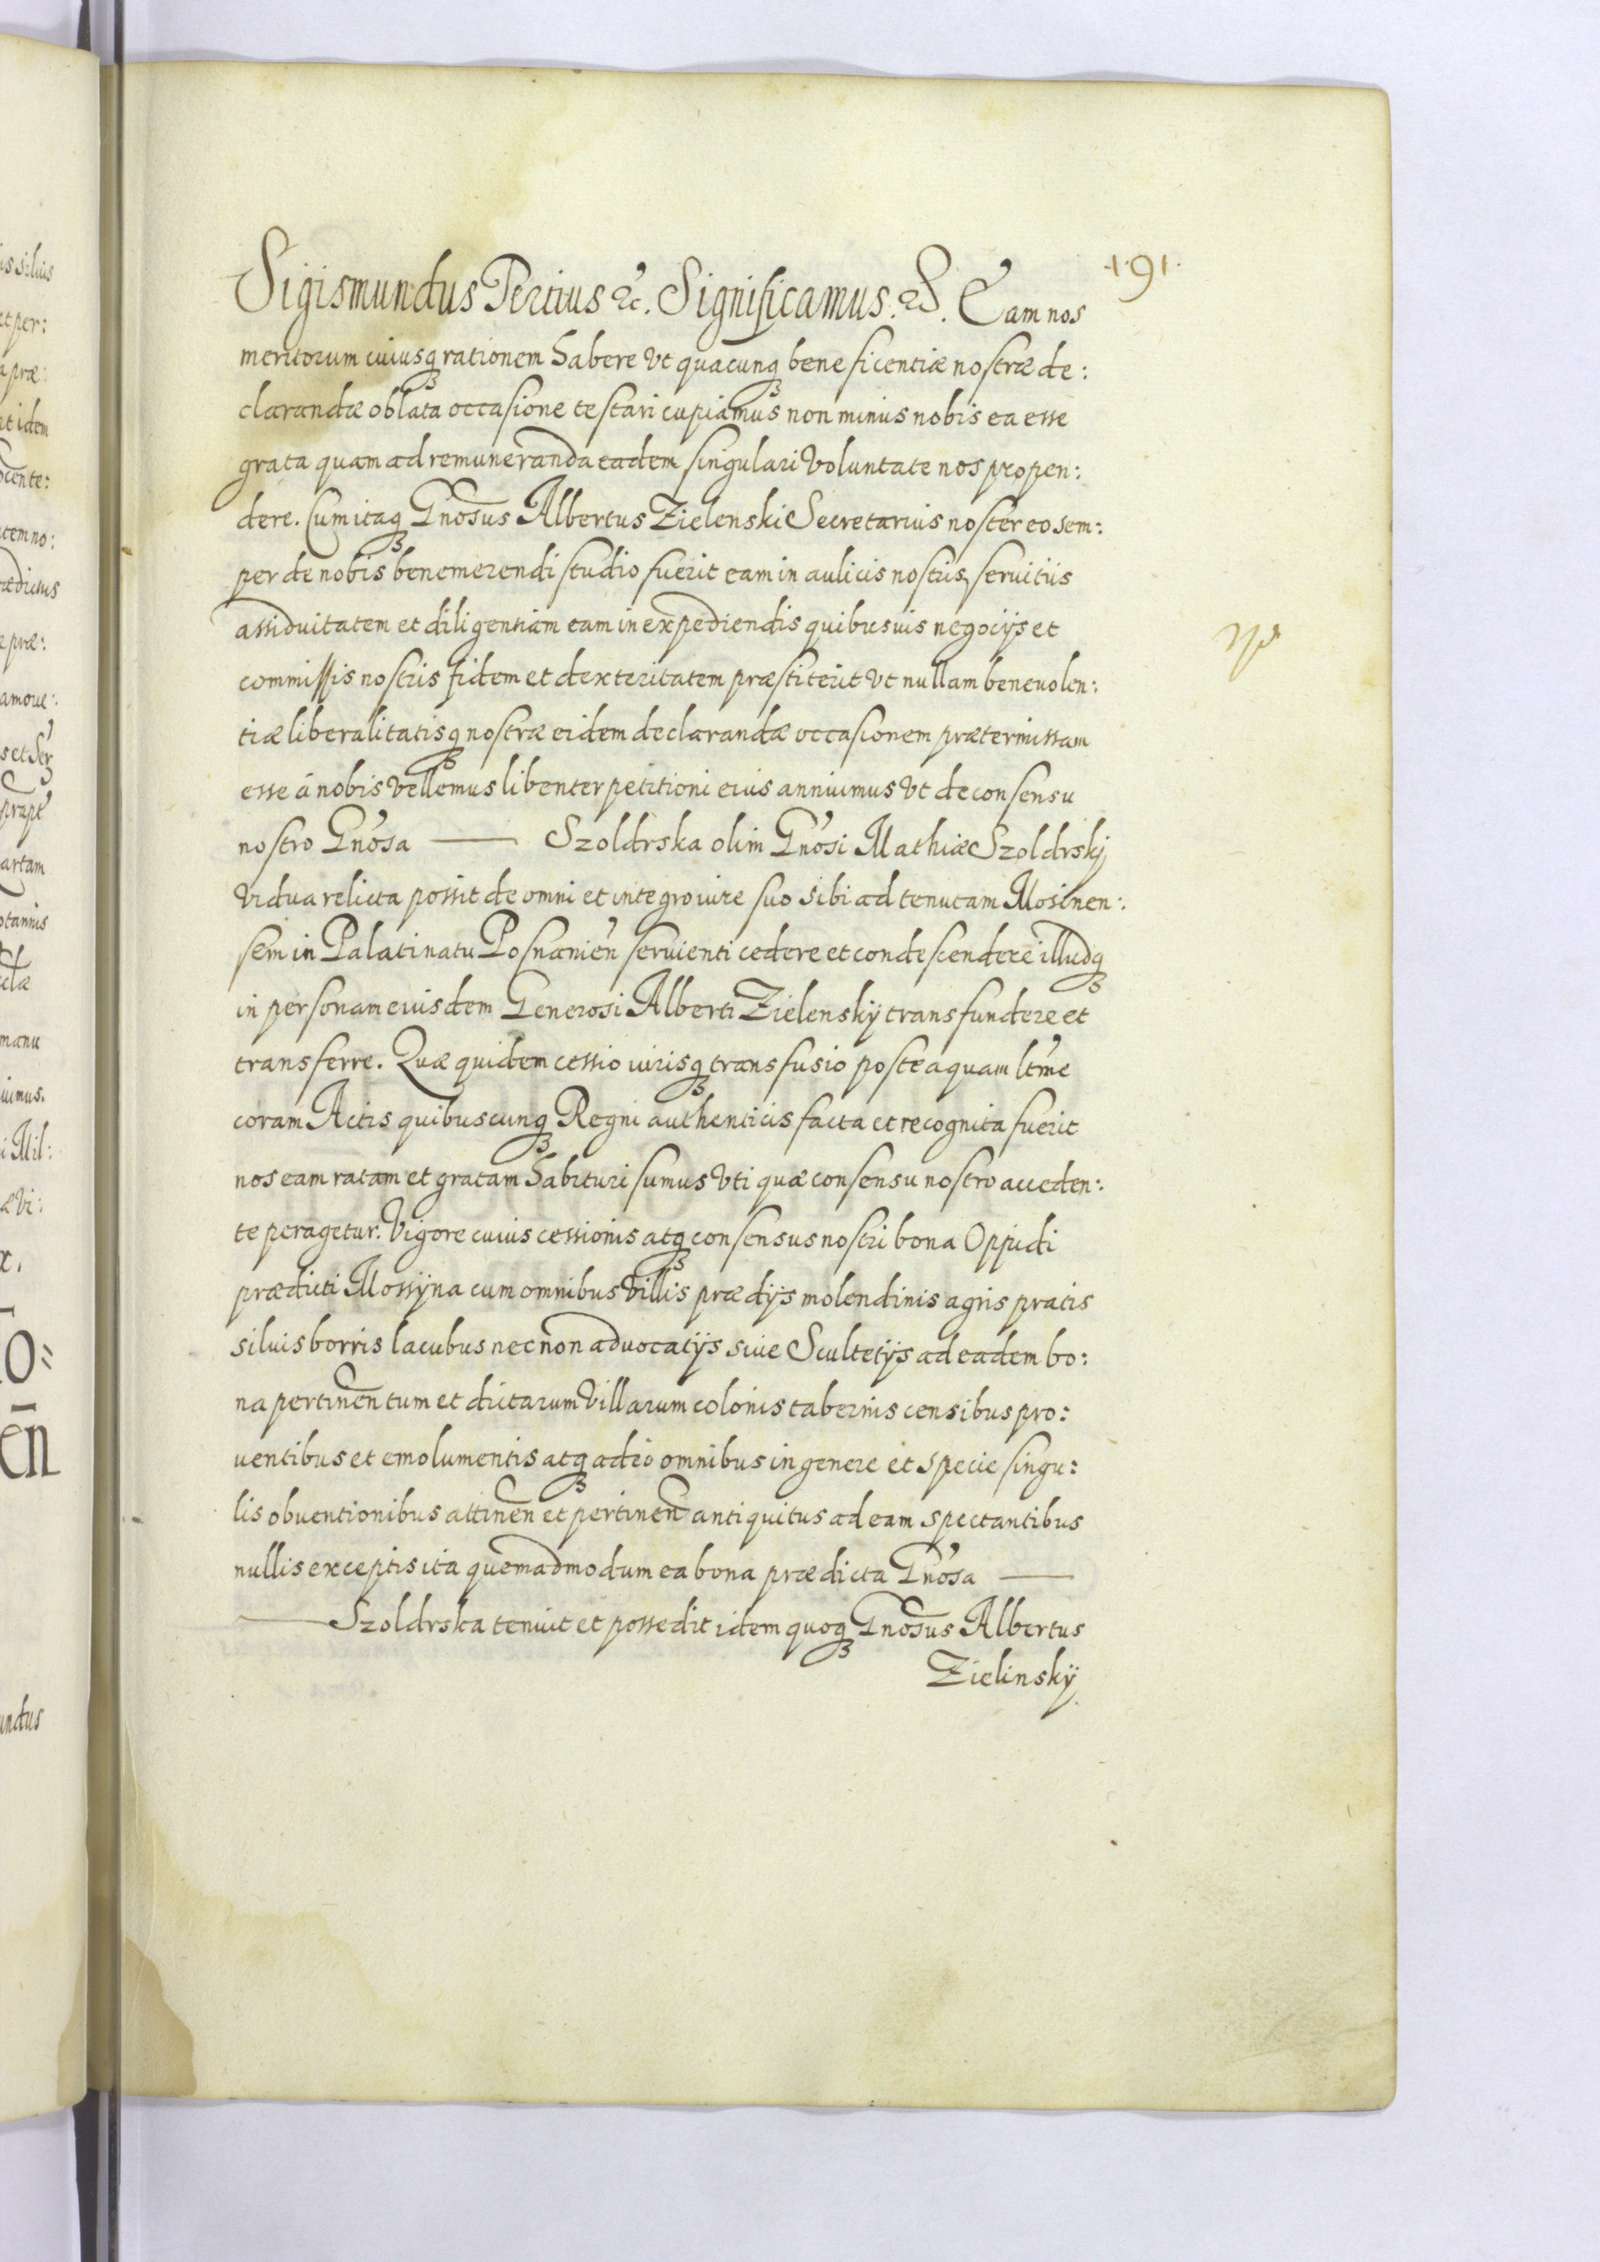 ·191·
Sigismundus Tertius &c. Significamus &c. Eam nos
meritorum cuiusq3 rationem habere Vt quacunq3 beneficentiæ nostræ de:
clarandæ oblata occasione testari cupiamus non minus nobis ea esse
grata quam ad remuneranda eadem singulari Voluntate nos propen:
dere. Cum itaq3 Gnosus Albertus Zielenski Secretarius noster eo sem:
per de nobis benemerendi studio fuerit eam in aulicis nostris seruitiis
assiduitatem et diligentiam eam in expediendis quibusuis negocijs et
commissis nostris fidem et dexteritatem præstiterit Vt nullam beneuolen:
tiæ liberalitatisq3 nostræ eidem declarandæ occasionem prætermissam
esse á nobis Vellemus libenter petitioni eius annuimus Vt de consensu
nostro Gnosa —— Szoldrska olim Gnosi Mathiæ Szoldrskj
Vidua relicta possit de omni et integro iure suo sibi ad tenutam Mosinen:
sem in Palatinatu Posnanien seruienti cedere et condescendere illudq3
in personam eiusdem Generosi Alberti Zielenskÿ transfundere et
transferre. Quæ quidem cessio iurisq3 transfusio posteaquam ltme
coram Actis quibuscunq3 Regni authenticis facta et recognita fuerit
nos eam ratam et gratam habituri sumus Vti quæ consensu nostro acceden:
te peragetur. Vigore cuius cessionis atq3 consensus nostri bona Oppidi
prædicti Mossÿna cum omnibus Villis prædÿs molendinis agris pratis
siluis borris lacubus necnon aduocatÿs siue Scultetÿs ad eadem bo:
na pertinen tum et dictarum Villarum colonis tabernis censibus pro:
uentibus et emolumentis atq3 adeo omnibus in genere et specie singu:
lis obuentionibus attinen et pertinen antiquitus ad eam spectantibus
nullis exceptis ita quemadmodum ea bona prædicta Gnosa ——
—— Szoldrska tenuit et possedit idem quoq3 Gnosus Albertus
Zielinskÿ